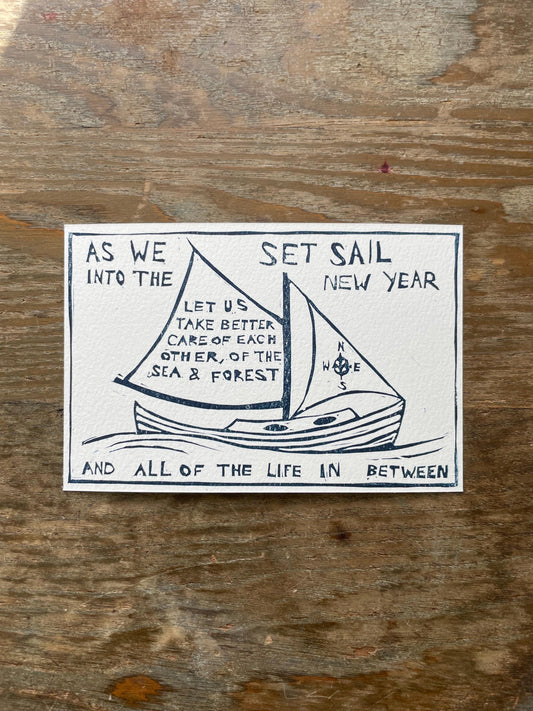 AS WE SET SAIL
INTO THE NEW YEAR
LET US
TAKE BETTER
CARE OF EACH
OTHER, OF THE
SEA & FOREST
N
W E
S
AND ALL OF THE LIFE IN BETWEEN